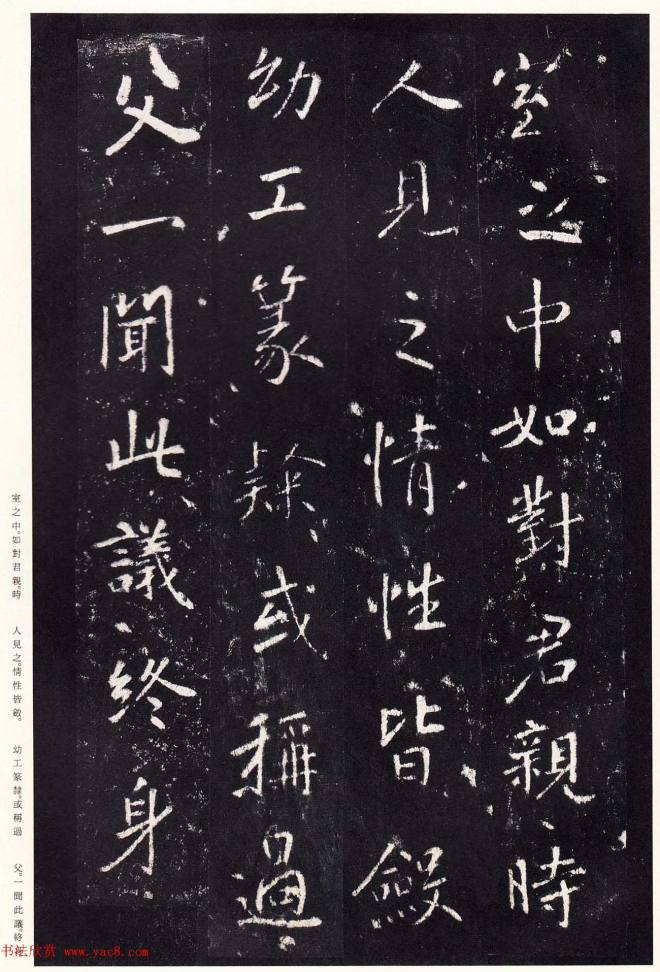 室之中如對君親時
人見之情性皆斂
幼工篆隸或稱過
父一聞此議終身
室之中。如對君親。時　人見之。情性皆斂。　幼工篆隸。或稱過　父。一聞此議。終身
书法欣赏 www.yac8.com